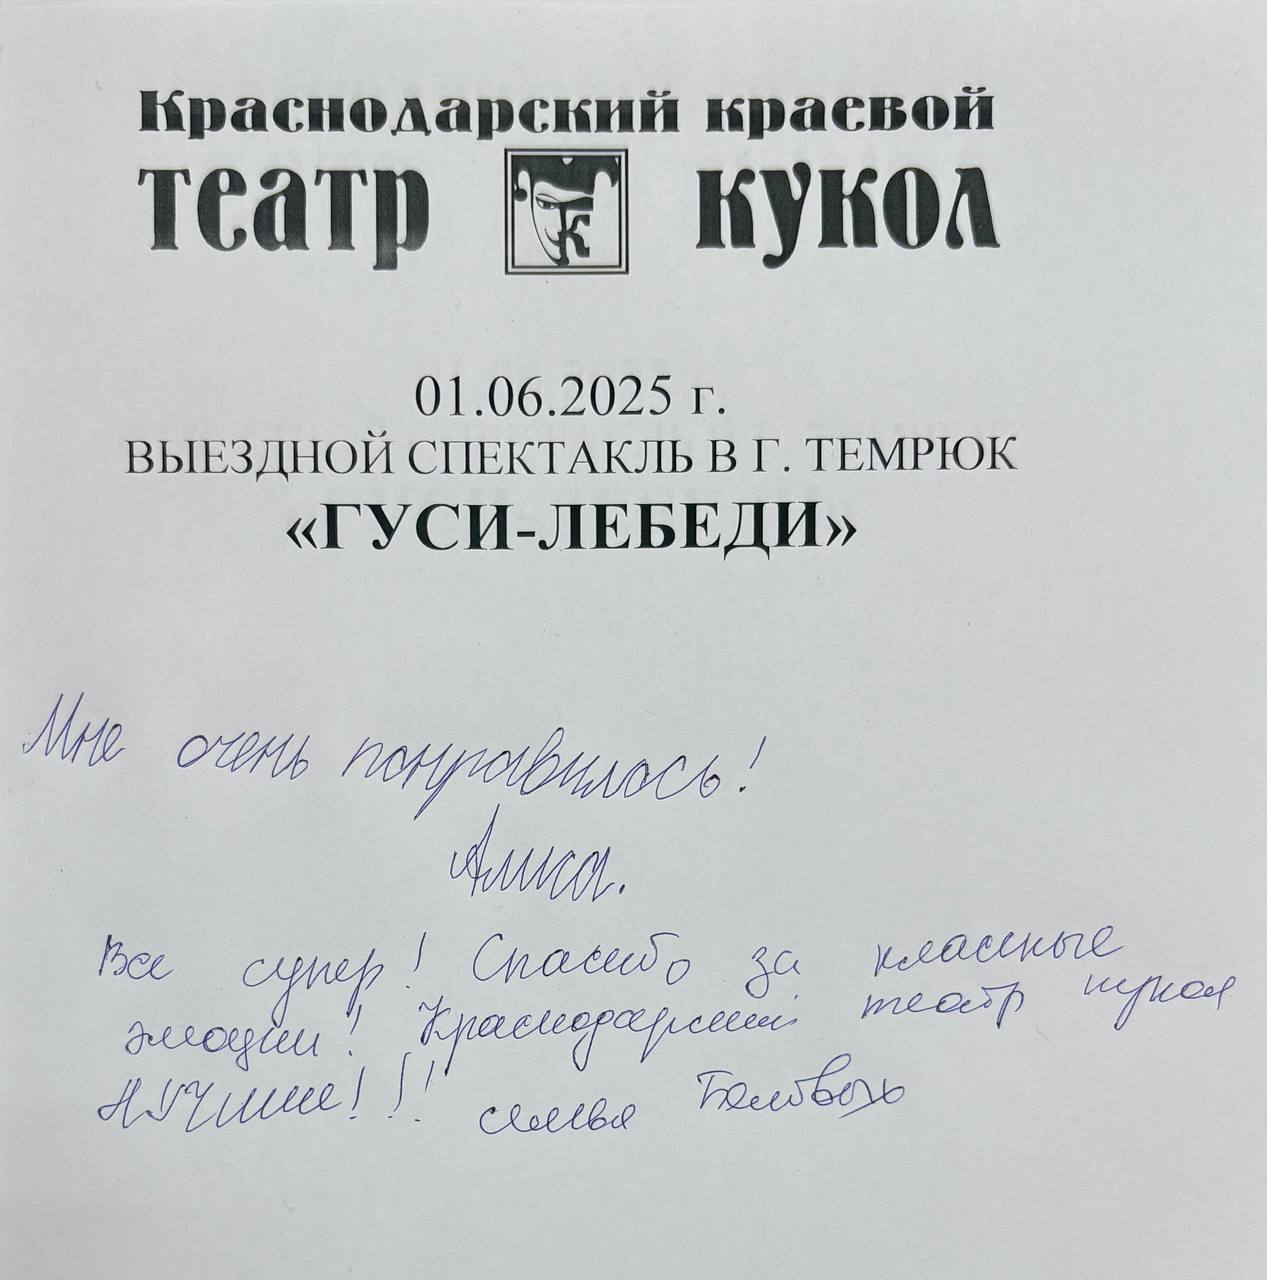 Краснодарский краевой
театр кукол
тк
01.06.2025 г.
ВЫЕЗДНОЙ СПЕКТАКЛЬ В Г. ТЕМРЮК
«ГУСИ-ЛЕБЕДИ»
Мне очень понравилось!
Все супер! Спасибо за классные
эмоции! Краснодарский театр кукол
лучшие!!! семья